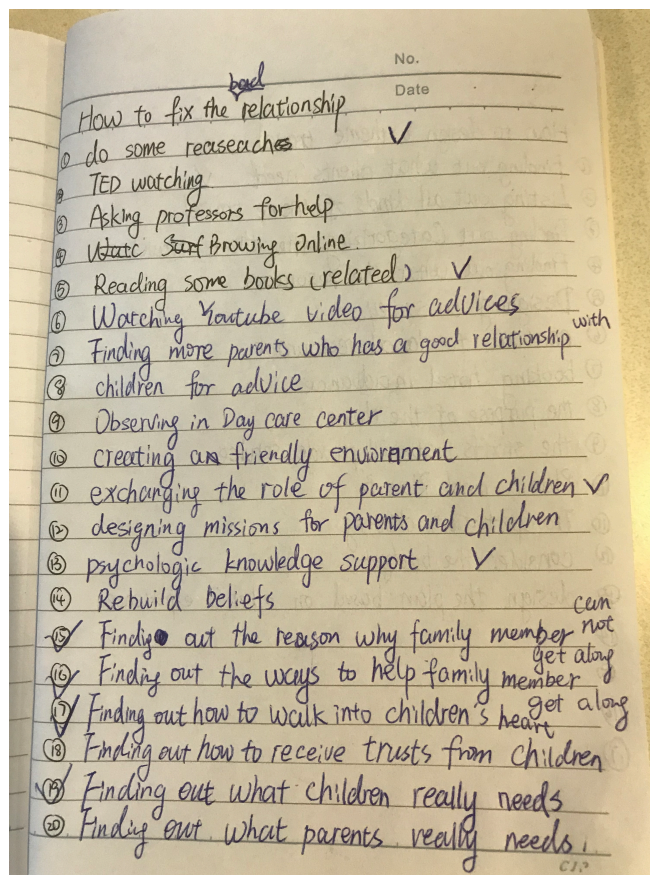 No.
Date
How to fix the bad relationship
① do some reaseaches ✓
② TED watching
③ Asking professors for help
④ Browing Online.
⑤ Reading some books (related) ✓
⑥ Watching Youtube video for advices
⑦ Finding more parents who has a good relationship with
⑧ children for advice
⑨ Observing in Day care center
⑩ creating a friendly enviornment
⑪ exchanging the role of parent and children ✓
⑫ designing missions for parents and children
⑬ psychologic knowledge support ✓
⑭ Rebuild beliefs
⑮ Findig out the reason why family member can not get along
⑯ Finding out the ways to help family member get along
⑰ Finding out how to walk into children's heart
⑱ Finding out how to receive trusts from children
⑲ Finding out what children really needs
⑳ Findig out what parents really needs.